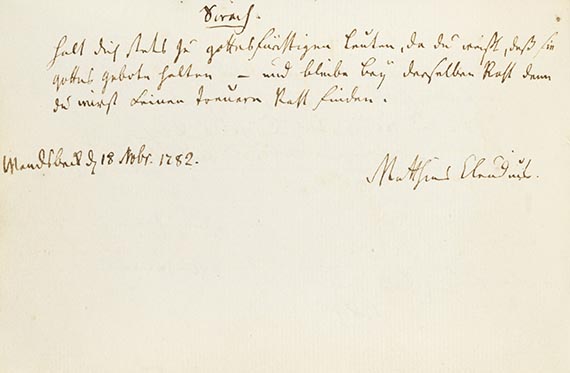 Sirach.
Halt dich stets zu gottesfürchtigen Leuten, da du weißt, daß sie
Gottes Gebote halten – und bleibe bey derselben Raht denn
du wirst keinen treuern Raht finden.
Wandsbeck d 18 Nobr. 1782.
Matthias Claudius.